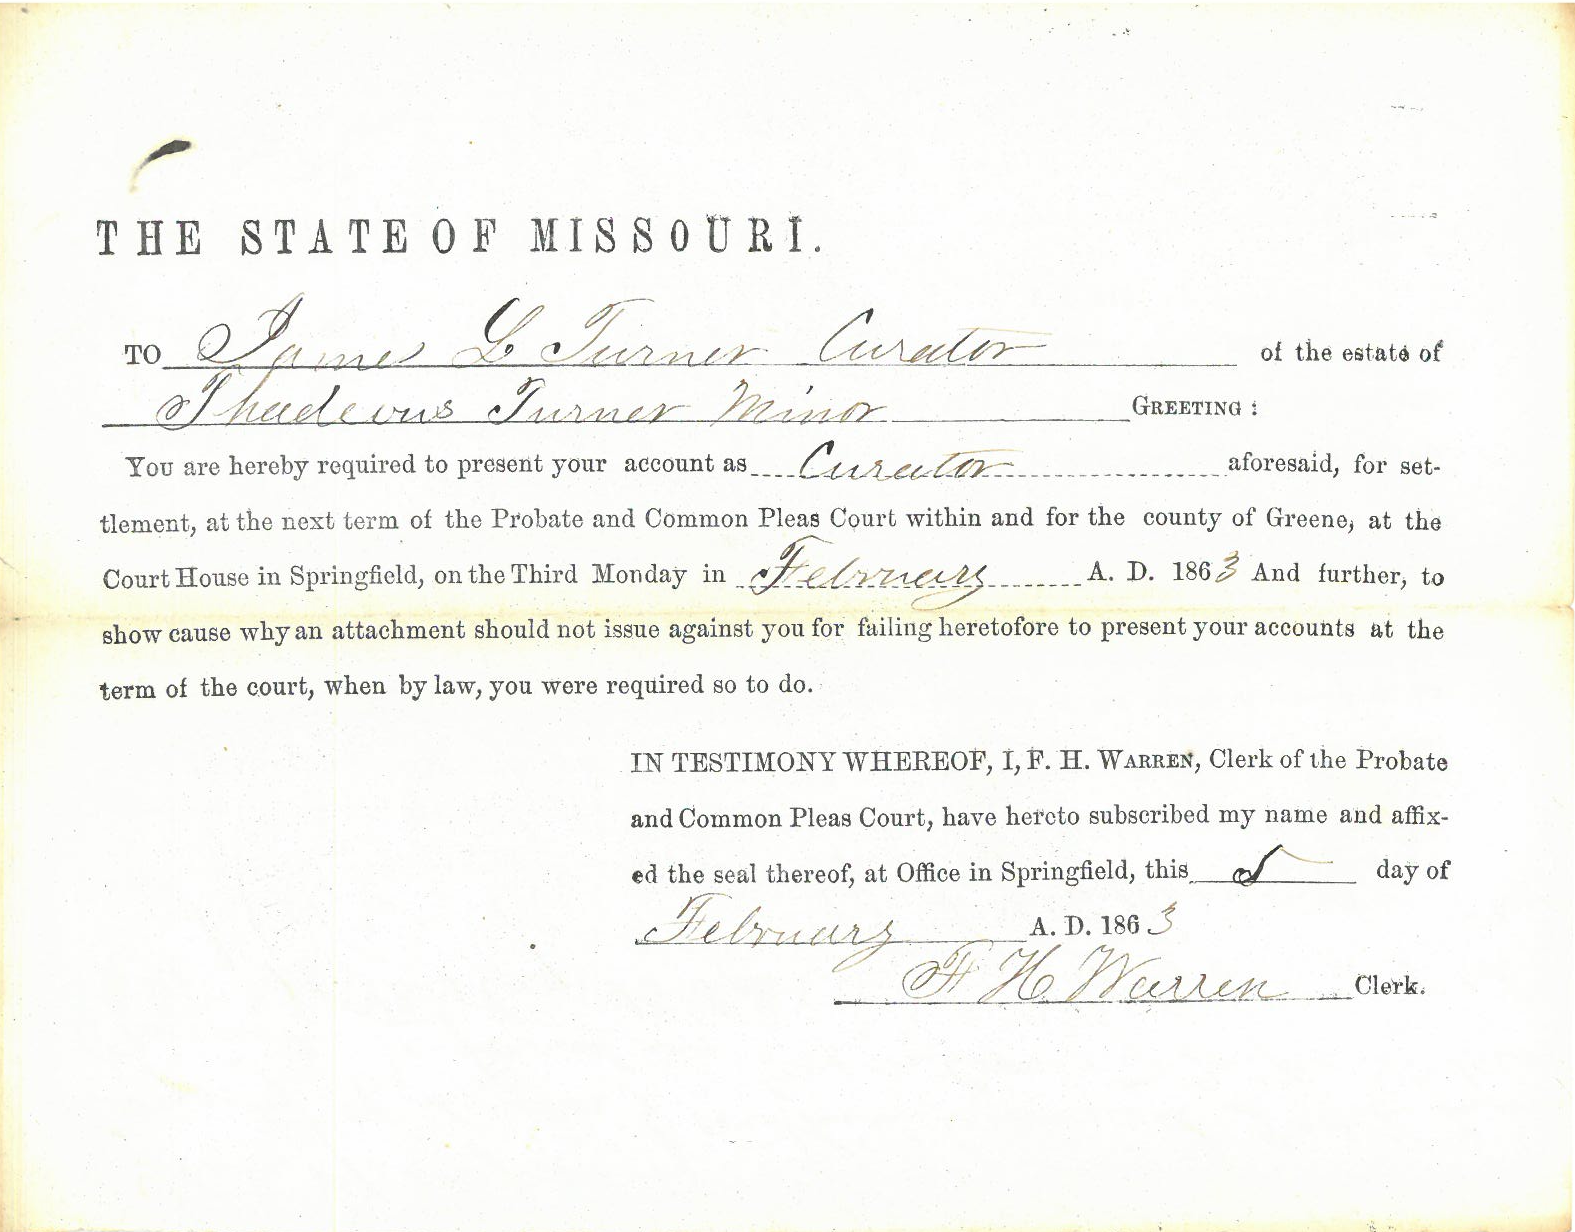 THE STATE OF MISSOURI.
TO James L Turner Curator of the estate of
Thadeous Turner Minor GREETING :
You are hereby required to present your account as Curator aforesaid, for set-
tlement, at the next term of the Probate and Common Pleas Court within and for the county of Greene, at the
Court House in Springfield, on the Third Monday in February A. D. 1863 And further, to
show cause why an attachment should not issue against you for failing heretofore to present your accounts at the
term of the court, when by law, you were required so to do.
IN TESTIMONY WHEREOF, I, F. H. WARREN, Clerk of the Probate
and Common Pleas Court, have hereto subscribed my name and affix-
ed the seal thereof, at Office in Springfield, this 5 day of
February A. D. 1863
F H Warren Clerk.